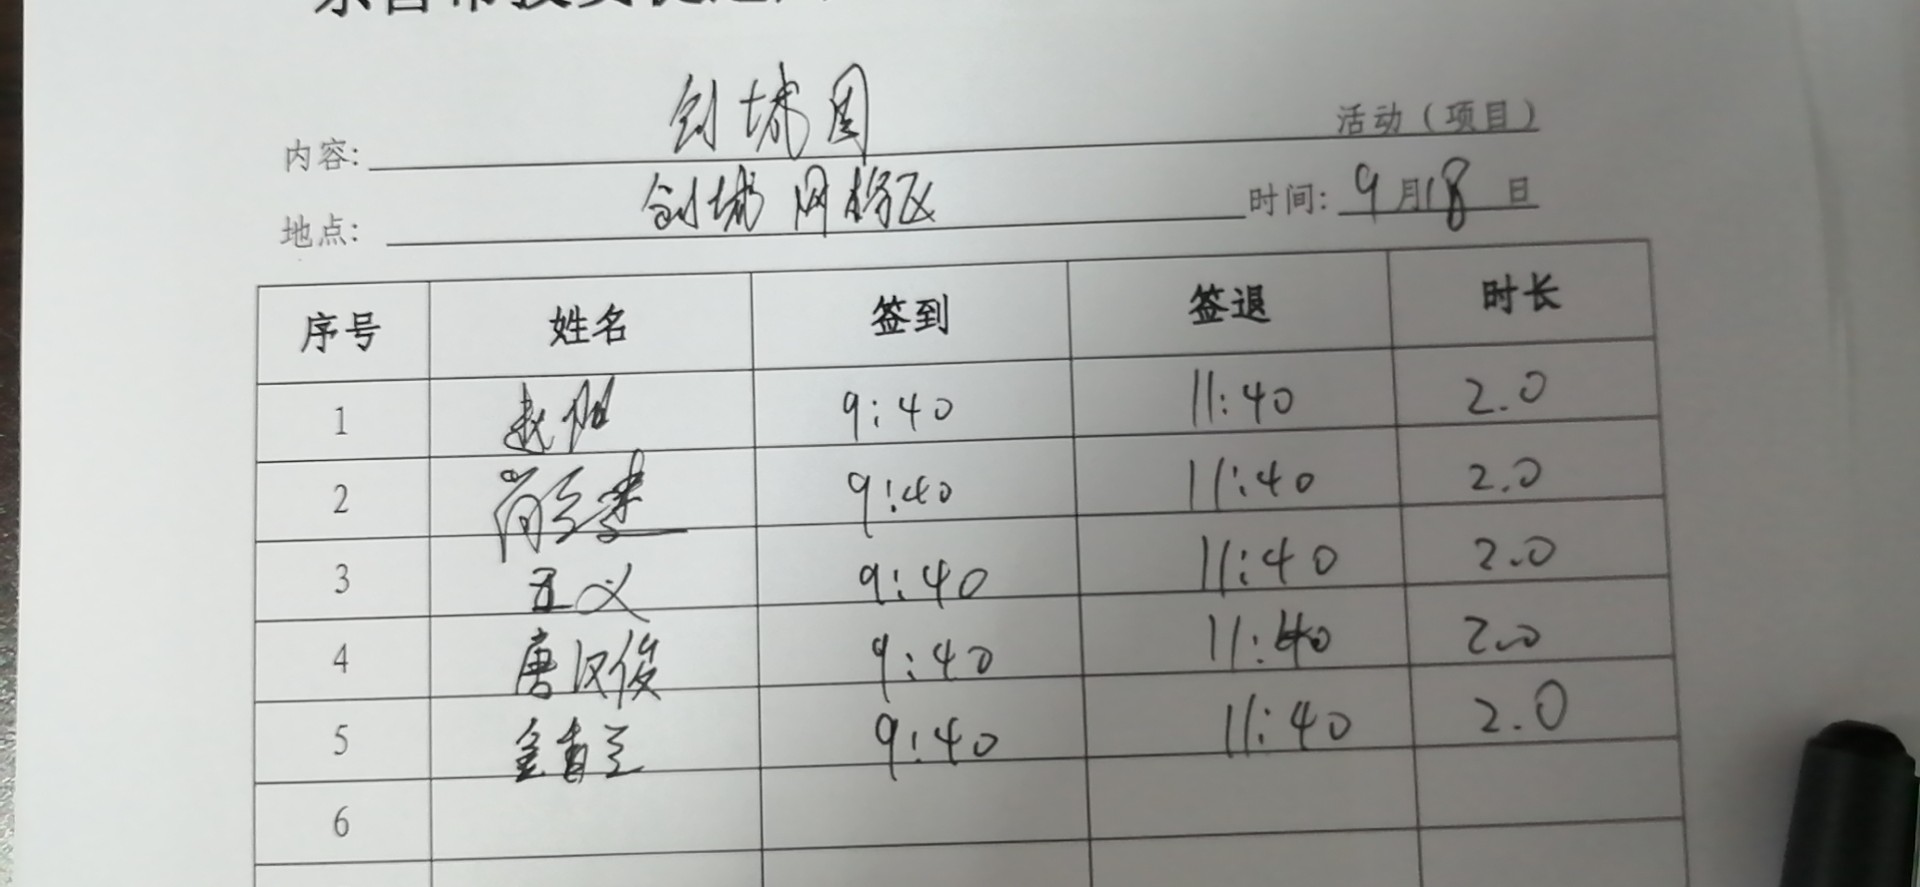 内容: 创城周 活动（项目）
地点: 创城网格区 时间: 9月18日
序号 姓名 签到 签退 时长
1 赵阳 9:40 11:40 2.0
2 9:40 11:40 2.0
3 王义 9:40 11:40 2.0
4 唐汉俊 9:40 11:40 2.0
5 9:40 11:40 2.0
6